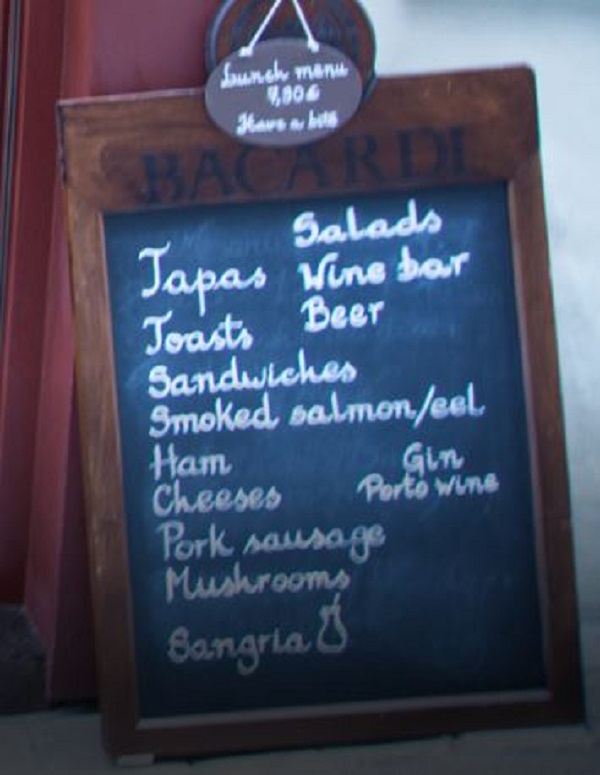 Lunch menu
7,90€
Have a bite
BACARDI
Salads
Tapas Wine bar
Toasts Beer
Sandwiches
Smoked salmon/eel
Ham Gin
Cheeses Porto wine
Pork sausage
Mushrooms
Sangria